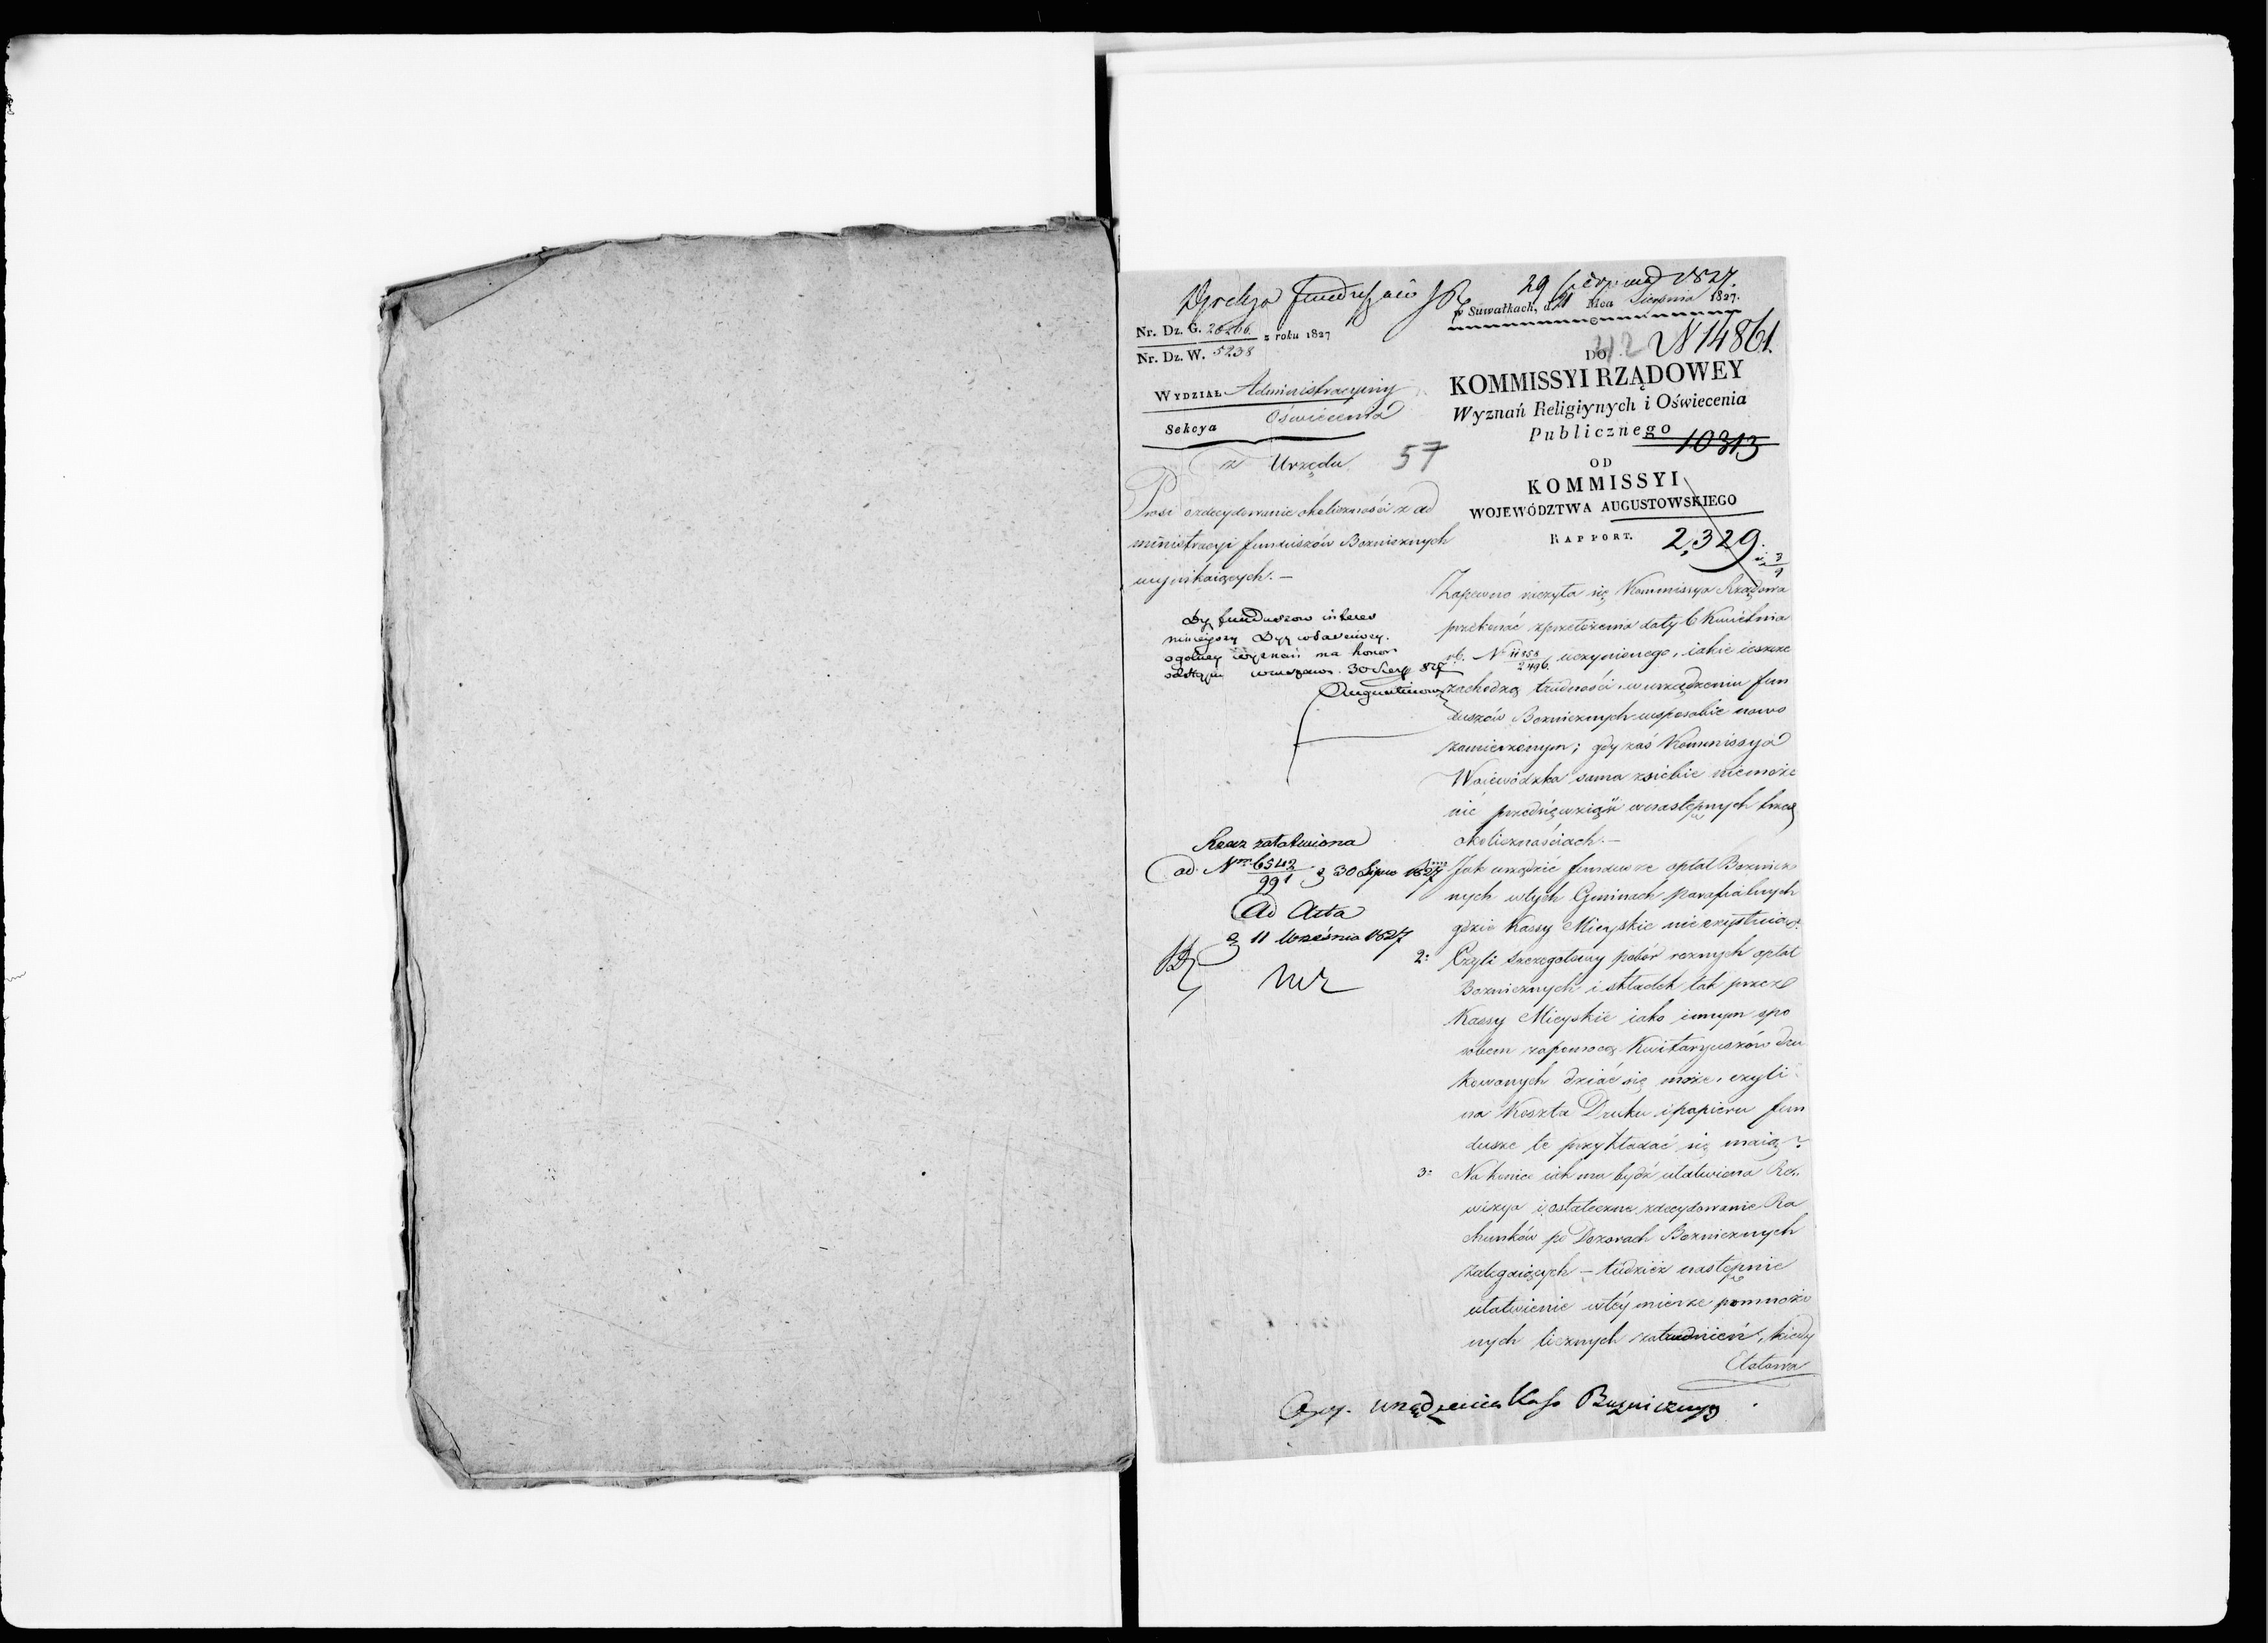 Dyrekcya Funduszów
29 Sierpnia 1827.
w Suwałkach, d. 21 Mca Sierpnia 1827.
Nr. Dz. G. 26266 z roku 1827
Nr. Dz. W. 5238
N 14861.
DO
KOMMISSYI RZĄDOWEY
Wyznań Religiynych i Oświecenia
Publicznego
10313
OD
KOMMISSYI
WOJEWÓDZTWA AUGUSTOWSKIEGO
RAPPORT.
2,329.
WYDZIAŁ Administracyiny
Sekcya Oświecenia
z Urzędu
57
Prosi o zdecydowanie okoliczności z ad
ministracyi funduszów Boznicznych
wynikaiących. —
Dy funduszow interes
ninieyszy Dyr właściwey
ogolney wyznań ma honor
odstąpić Warszawa. 30 Sierp 827
Augustinowicz
Rzecz załatwiona
ad Nrm 6542/991 d 30 Lipca 1827
Ad Acta
d 11 Września 1827
Zapewne raczyła się Kommissya Rządowa
przekonać z przełożenia daty 6 Kwietnia
rb. N 11858/2496 uczynionego, iakie ieszcze
zachodzą trudności w urządzeniu fun
duszów Bozniczych w sposobie nowo
zamierzonym; gdy zaś Kommissya
Woiewódzka sama z siebie niemoże
nic przedsięwziąść w następnych trzech
okolicznościach. —
1mo Jak urządzić fundusze opłat Boznicz
nych w tych Gminach parafialnych
gdzie Kassy Mieyskie nie exystuią?
2: Czyli szczegolowy pobór roznych opłat
Bozniczych i składek tak przez
Kassy Mieyskie iako innym spo
sobem zapomocą Kwitaryuszów dru
kowanych dziać się może, czyli
na Koszta Druku i papieru fun
dusze te przykładać się maią?
3: Na koniec iak ma bydź ułatwiona Re
wizya i ostateczne zdecydowanie Ra
chunków po Dozorach Bozniczych
zalegaiących — tudzież następnie
ułatwienie w téy mierze pomnożo
nych licznych zatrudnień, kiedy
Etatowa
urządzenia Kass Bużniczych